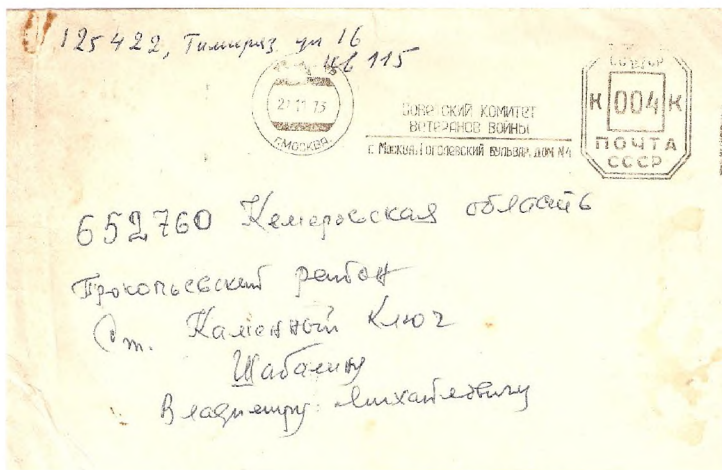 125422, Тимиряз ул 16
кв 115
27 11 75
Г.МОСКВА
СОВЕТСКИЙ КОМИТЕТ
ВЕТЕРАНОВ ВОЙНЫ
г. Москва, Гоголевский бульвар, дом №4
К 004 К
ПОЧТА
СССР
652760 Кемеровская область
Прокопьевский район
Ст. Каменный Ключ
Шабалину
Владимиру Михайловичу